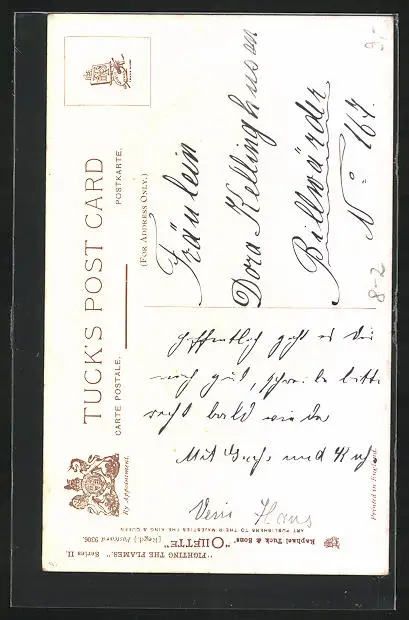 TUCK'S POST CARD
CARTE POSTALE.
POSTKARTE.
(FOR ADDRESS ONLY.)
By Appointment.
Fräulein
Dora Kellinghusen
Billwärder
No: 167.
8-2
Hoffentlich geht es Dir
noch gut, schreibe bitte
recht bald wieder
Mit Gruss und Kuss
Hans
Raphael Tuck & Sons' "OILETTE"
[Regd.] Postcard 9306.
ART PUBLISHERS TO THEIR MAJESTIES THE KING & QUEEN
"FIGHTING THE FLAMES." Series II.
Printed in England.